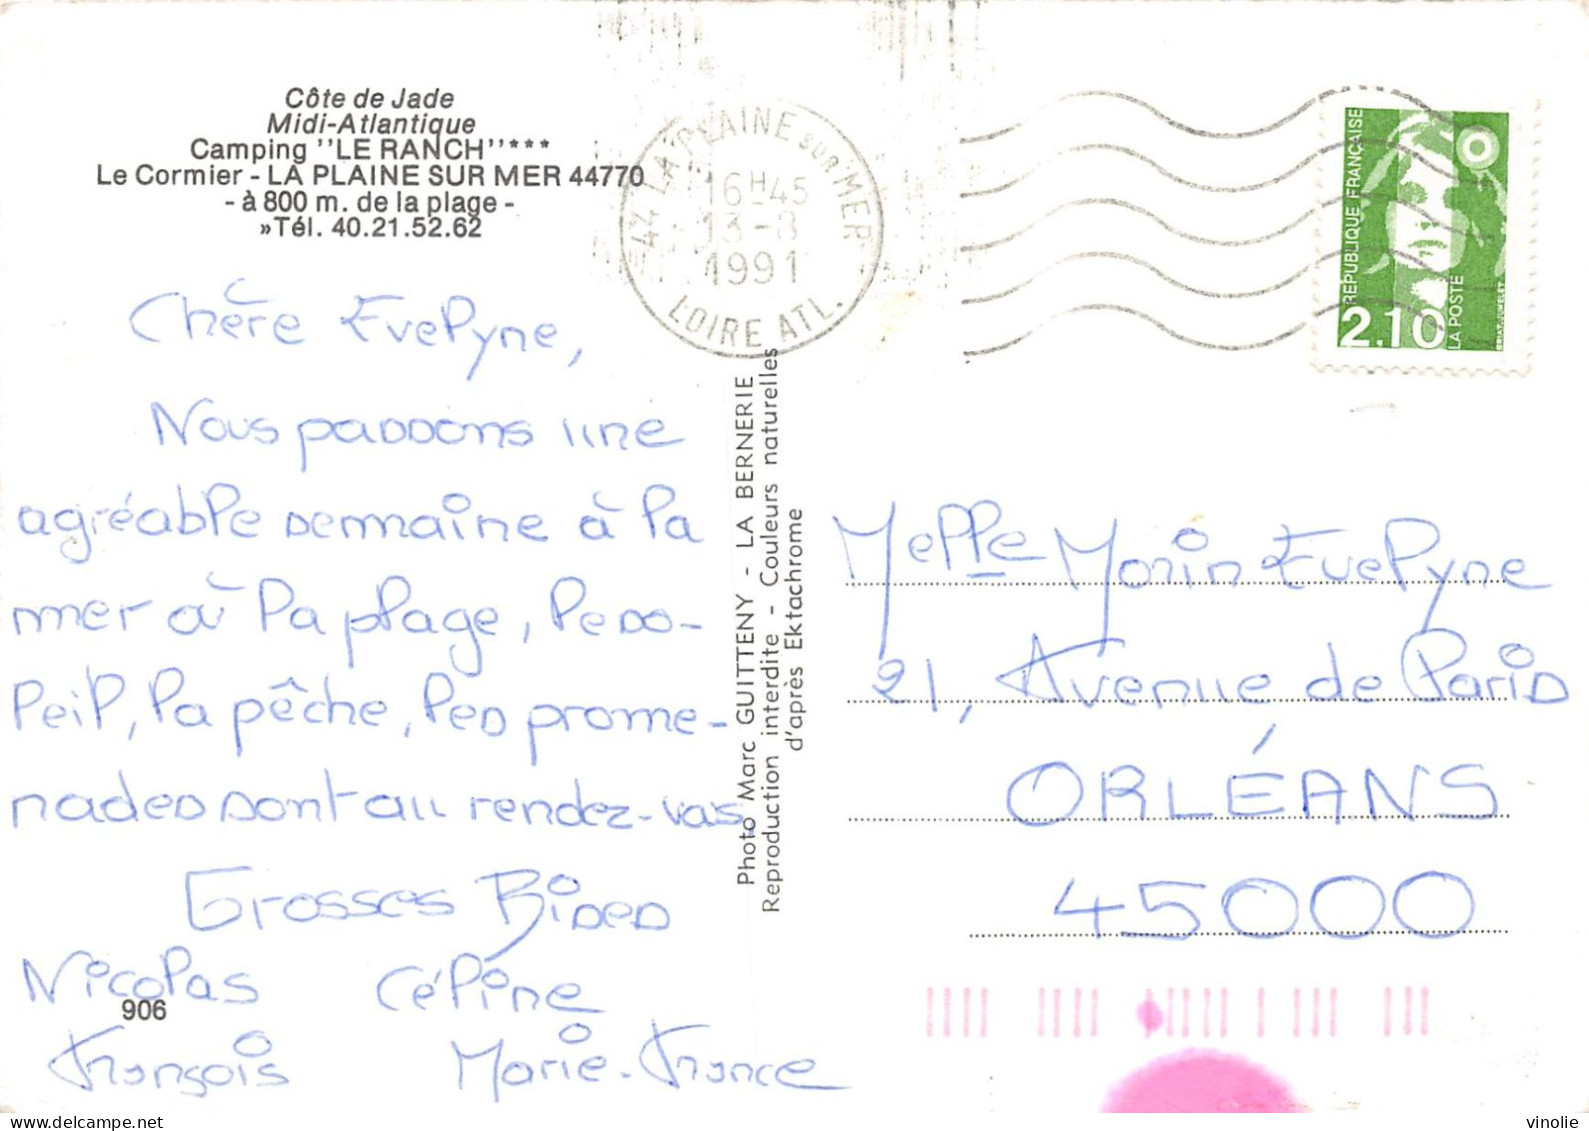 Côte de Jade
Midi-Atlantique
Camping "LE RANCH"***
Le Cormier - LA PLAINE SUR MER 44770
- à 800 m. de la plage -
»Tél. 40.21.52.62
44 LA PLAINE SUR MER
16H45
13-8
1991
LOIRE ATL.
REPUBLIQUE FRANÇAISE
2,10
LA POSTE
BRIAT-JUMELET
Chère Evelyne,
Nous passons une
agréable semaine à la
mer où la plage, le so-
leil, la pêche, les prome-
nades sont au rendez-vous.
Grosses Bises
Nicolas Céline
François Marie-France
906
Photo Marc GUITTENY - LA BERNERIE
Reproduction interdite - Couleurs naturelles
d'après Ektachrome
Melle Morin Evelyne
21, Avenue de Paris
ORLÉANS
45000
vinolie
delcampe.net